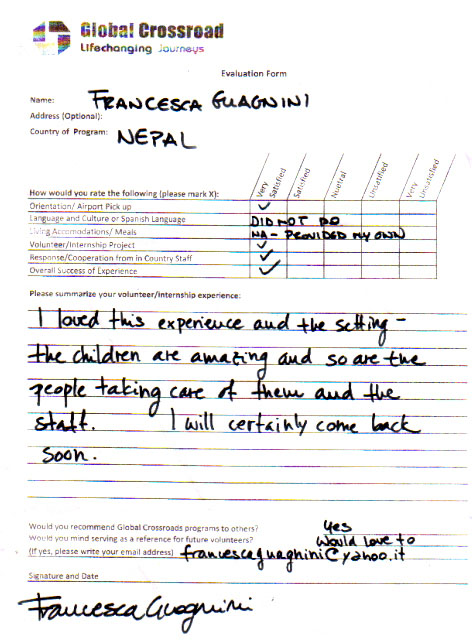 Global Crossroad
Lifechanging Journeys
Evaluation Form
Name: FRANCESCA GUAGNINI
Address (Optional):
Country of Program: NEPAL
How would you rate the following (please mark X): Very Satisfied Satisfied Nuetral Unsatified Very Unsatisfied
Orientation/ Airport Pick up ✓
Language and Culture or Spanish Language DID NOT DO
Living Accomodations/ Meals NA - PROVIDED MY OWN
Volunteer/Internship Project ✓
Response/Cooperation from in Country Staff ✓
Overall Success of Experience ✓
Please summarize your volunteer/internship experience:
I loved this experience and the setting -
the children are amazing and so are the
people taking care of them and the
staff. I will certainly come back
soon.
Would you recommend Global Crossroads programs to others? Yes
Would you mind serving as a reference for future volunteers? Would love to
(If yes, please write your email address) francescaguagnini@yahoo.it
Signature and Date
Francesca Guagnini